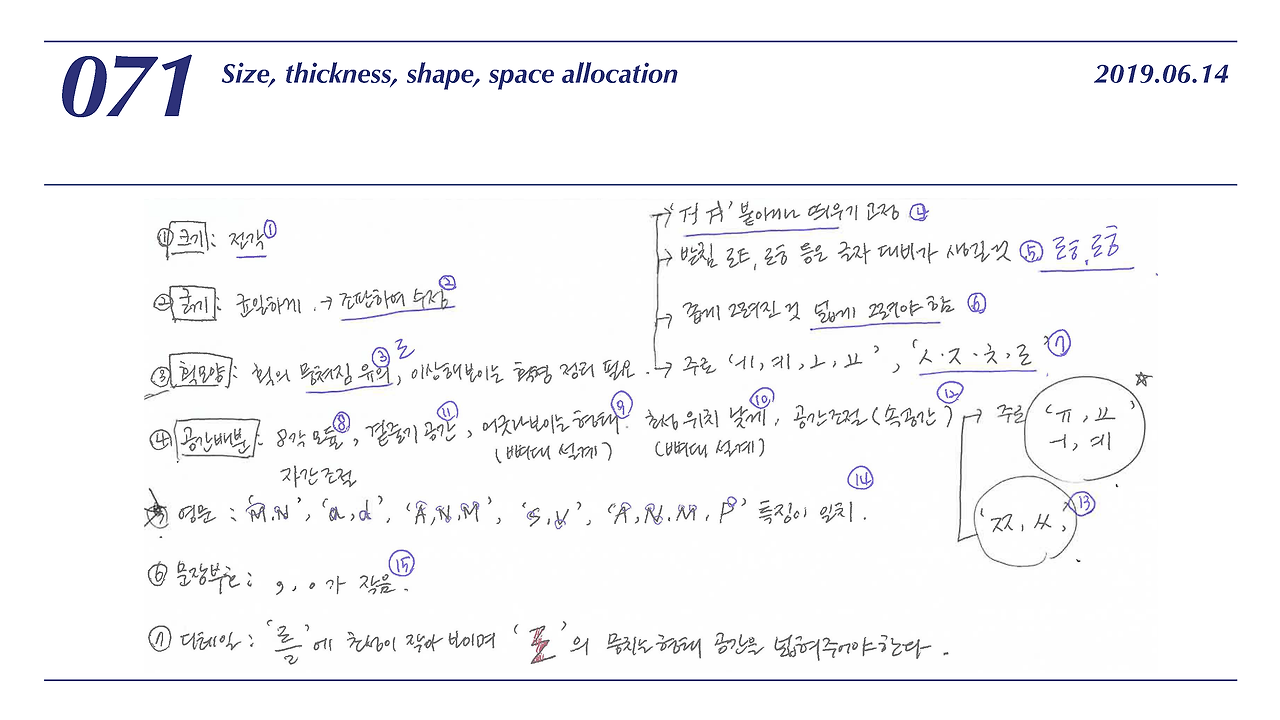 071
Size, thickness, shape, space allocation
2019.06.14
① 크기 : 전각 ①
② 굵기 : 균일하게 → 조판하여 수정 ②
③ 획모양 : 획의 뭉쳐짐 유의, ③ 이상해보이는 정리 필요.
붙어버린 띄우기 고정 ④
받침 등은 글자 대비가 생길 것 ⑤
좁게 그려진 것 넓게 그려야 함 ⑥
주로 'ㅔ, ㅖ, ㅗ, ㅛ', 'ㅅ·ㅈ·ㅊ·ㄹ' ⑦
④ 공간배분 : 8각 모듈 ⑧, 곁줄기 공간 ⑪, 어긋나보이는 형태 ⑨ 초성 위치 낮게 ⑩, 공간조절 (속공간) ⑫
(뼈대 설계) (뼈대 설계)
자간조절
주로 'ㅠ, ㅛ'
ㅓ, ㅖ
'ㅉ, ㅆ,' ⑬
영문 : 'M,N', 'a,d', 'A,N,M', 'S,V', 'A,N,M,P' 특징이 일치. ⑭
⑥ 문장부호 : 가 작음. ⑮
⑦ 디테일 : '를'에 초성이 작아 보이며 '의 뭉치는 형태 공간을 넓혀주어야한다.